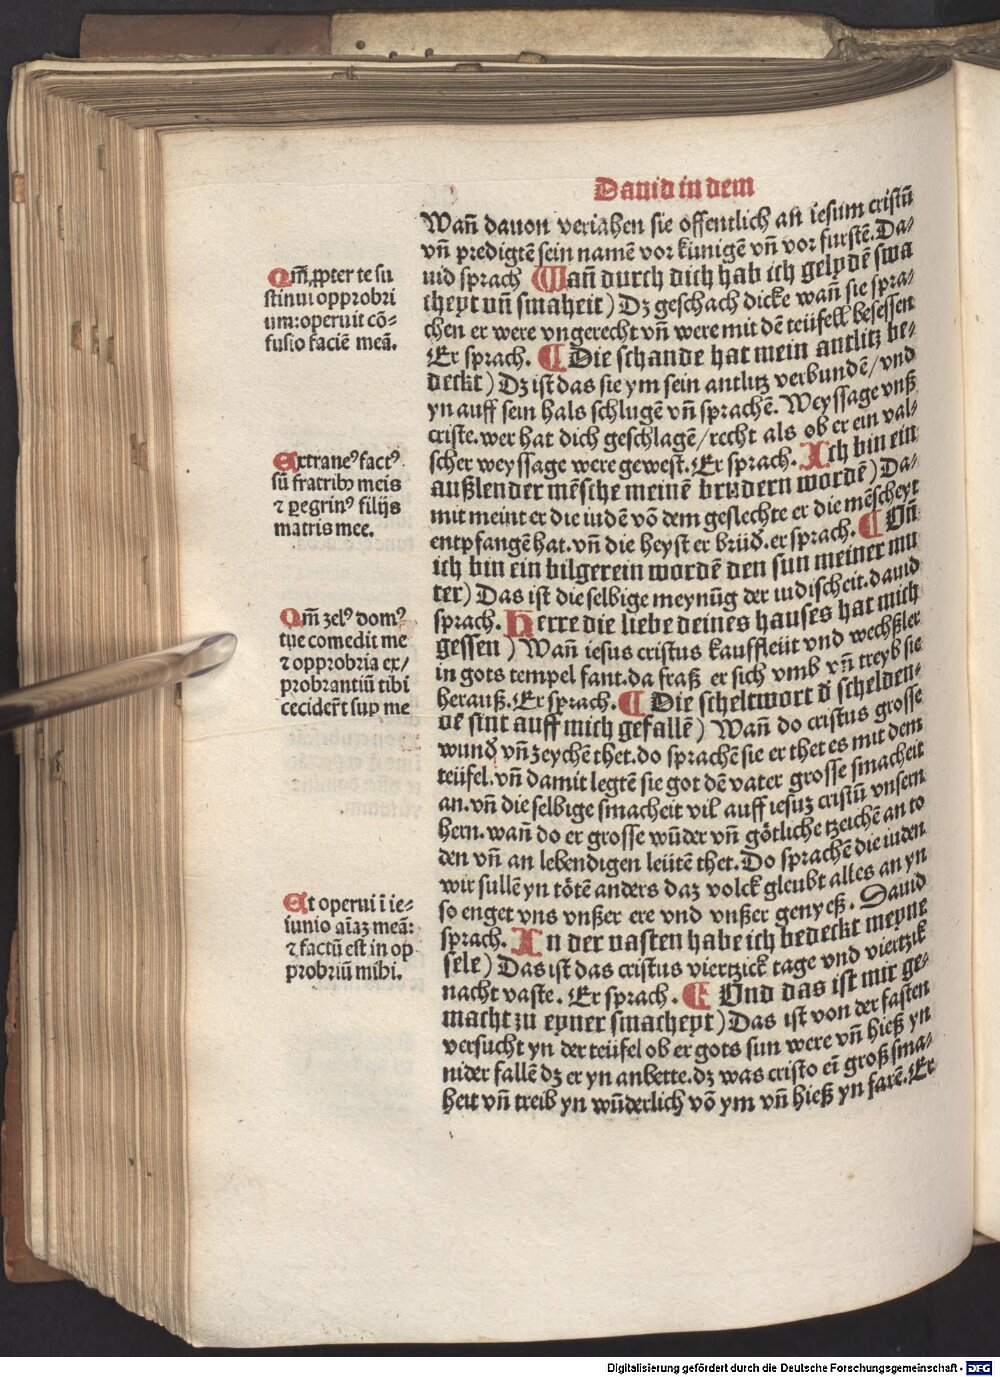 Dauid in dem
Wañ dauon veriahen sie offentlich an iesum cristũ
vñ predigtẽ sein namẽ vor künigẽ vñ vor furstẽ. Da⸗
uid sprach Wañ durch dich hab ich gelydẽ swa
cheyt vñ smaheit) Dz geschach dicke wañ sie spra⸗
chen er were vngerecht vñ were mit dẽ teüfell besessen
Er sprach. Die schande hat mein antlitz be⸗
deckt) Dz ist das sie ym sein antlitz verbundẽ/ vnd
yn auff sein hals schlugẽ vñ sprachẽ. Weyssage vnß
criste. wer hat dich geschlagẽ/ recht als ob er ein val⸗
scher weyssage were gewest. Er sprach. Ich bin ein
außlender mẽsche meinẽ brudern wordẽ) Da⸗
mit meint er die iudẽ võ dem geslechte er die mẽscheyt
entpfangẽ hat. vñ die heyst er brüd̃. er sprach. Vñ
ich bin ein bilgerein wordẽ den sun meiner mu
ter) Das ist die selbige meynũg der iudischeit. dauid
sprach. Herre die liebe deines hauses hat mich
gessen) Wañ iesus cristus kauffleüt vnd wechßler
in gots tempel fant. da fraß er sich vmb vñ treyb sie
herauß. Er sprach. Die scheltwort d̃ schelden⸗
dẽ sint auff mich gefallẽ) Wañ do cristus grosse
wund̃ vñ zeychẽ thet. do sprachẽ sie er thet es mit dem
teüfel. vñ damit legtẽ sie got dẽ vater grosse smacheit
an. vñ die selbige smacheit vil auff iesuz cristũ vnsern
hern. wañ do er grosse wũder vñ götliche tzeichẽ an to
den vñ an lebendigen leütẽ thet. Do sprachẽ die iuden
wir sullẽ yn tötẽ anders daz volck gleubt alles an yn
so enget vns vnßer ere vnd vnßer genyeß. Dauid
sprach. In der vasten habe ich bedeckt meyne
sele) Das ist das cristus viertzick tage vnd viertzik
nacht vaste. Er sprach. Vnd das ist mir ge⸗
macht zu eyner smacheyt) Das ist von der fasten
versucht yn der teüfel ob er gots sun were vñ hieß yn
nider fallẽ dz er yn anbette. dz was cristo eĩ groß sma⸗
heit vñ treib yn wũderlich võ ym vñ hieß yn farẽ. Er
Qm̃ ꝓpter te su
stinui opprobri
um: operuit cõ⸗
fusio faciẽ meã.
Extraneꝰ factꝰ
sũ fratribꝰ meis
⁊ ꝑegrinꝰ filijs
matris mee.
Qm̃ zelꝰ domꝰ
tue comedit me
⁊ opprobria ex/
probrantiũ tibi
cecider̃t sup me
Et operui ĩ ie⸗
iunio aĩaz meã:
⁊ factũ est in op
probriũ mihi.
Digitalisierung gefördert durch die Deutsche Forschungsgemeinschaft - DFG